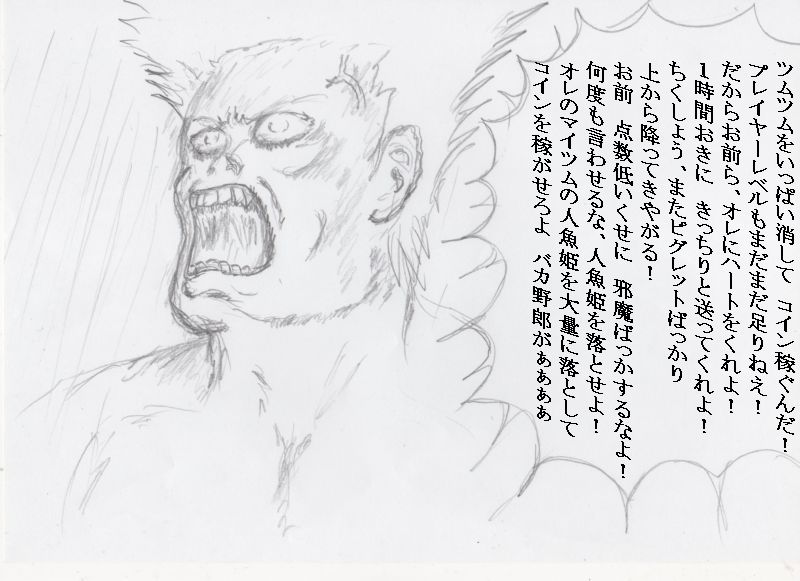 ツムツムをいっぱい消して コイン稼ぐんだ！
プレイヤーレベルもまだまだ足りねえ！
だからお前ら、オレにハートをくれよ！
１時間おきに きっちりと送ってくれよ！
ちくしょう、またピグレットばっかり
上から降ってきやがる！
お前 点数低いくせに 邪魔ばっかするなよ！
何度も言わせるな、人魚姫を落とせよ！
オレのマイツムの人魚姫を大量に落として
コインを稼がせろよ バカ野郎がぁぁぁぁ